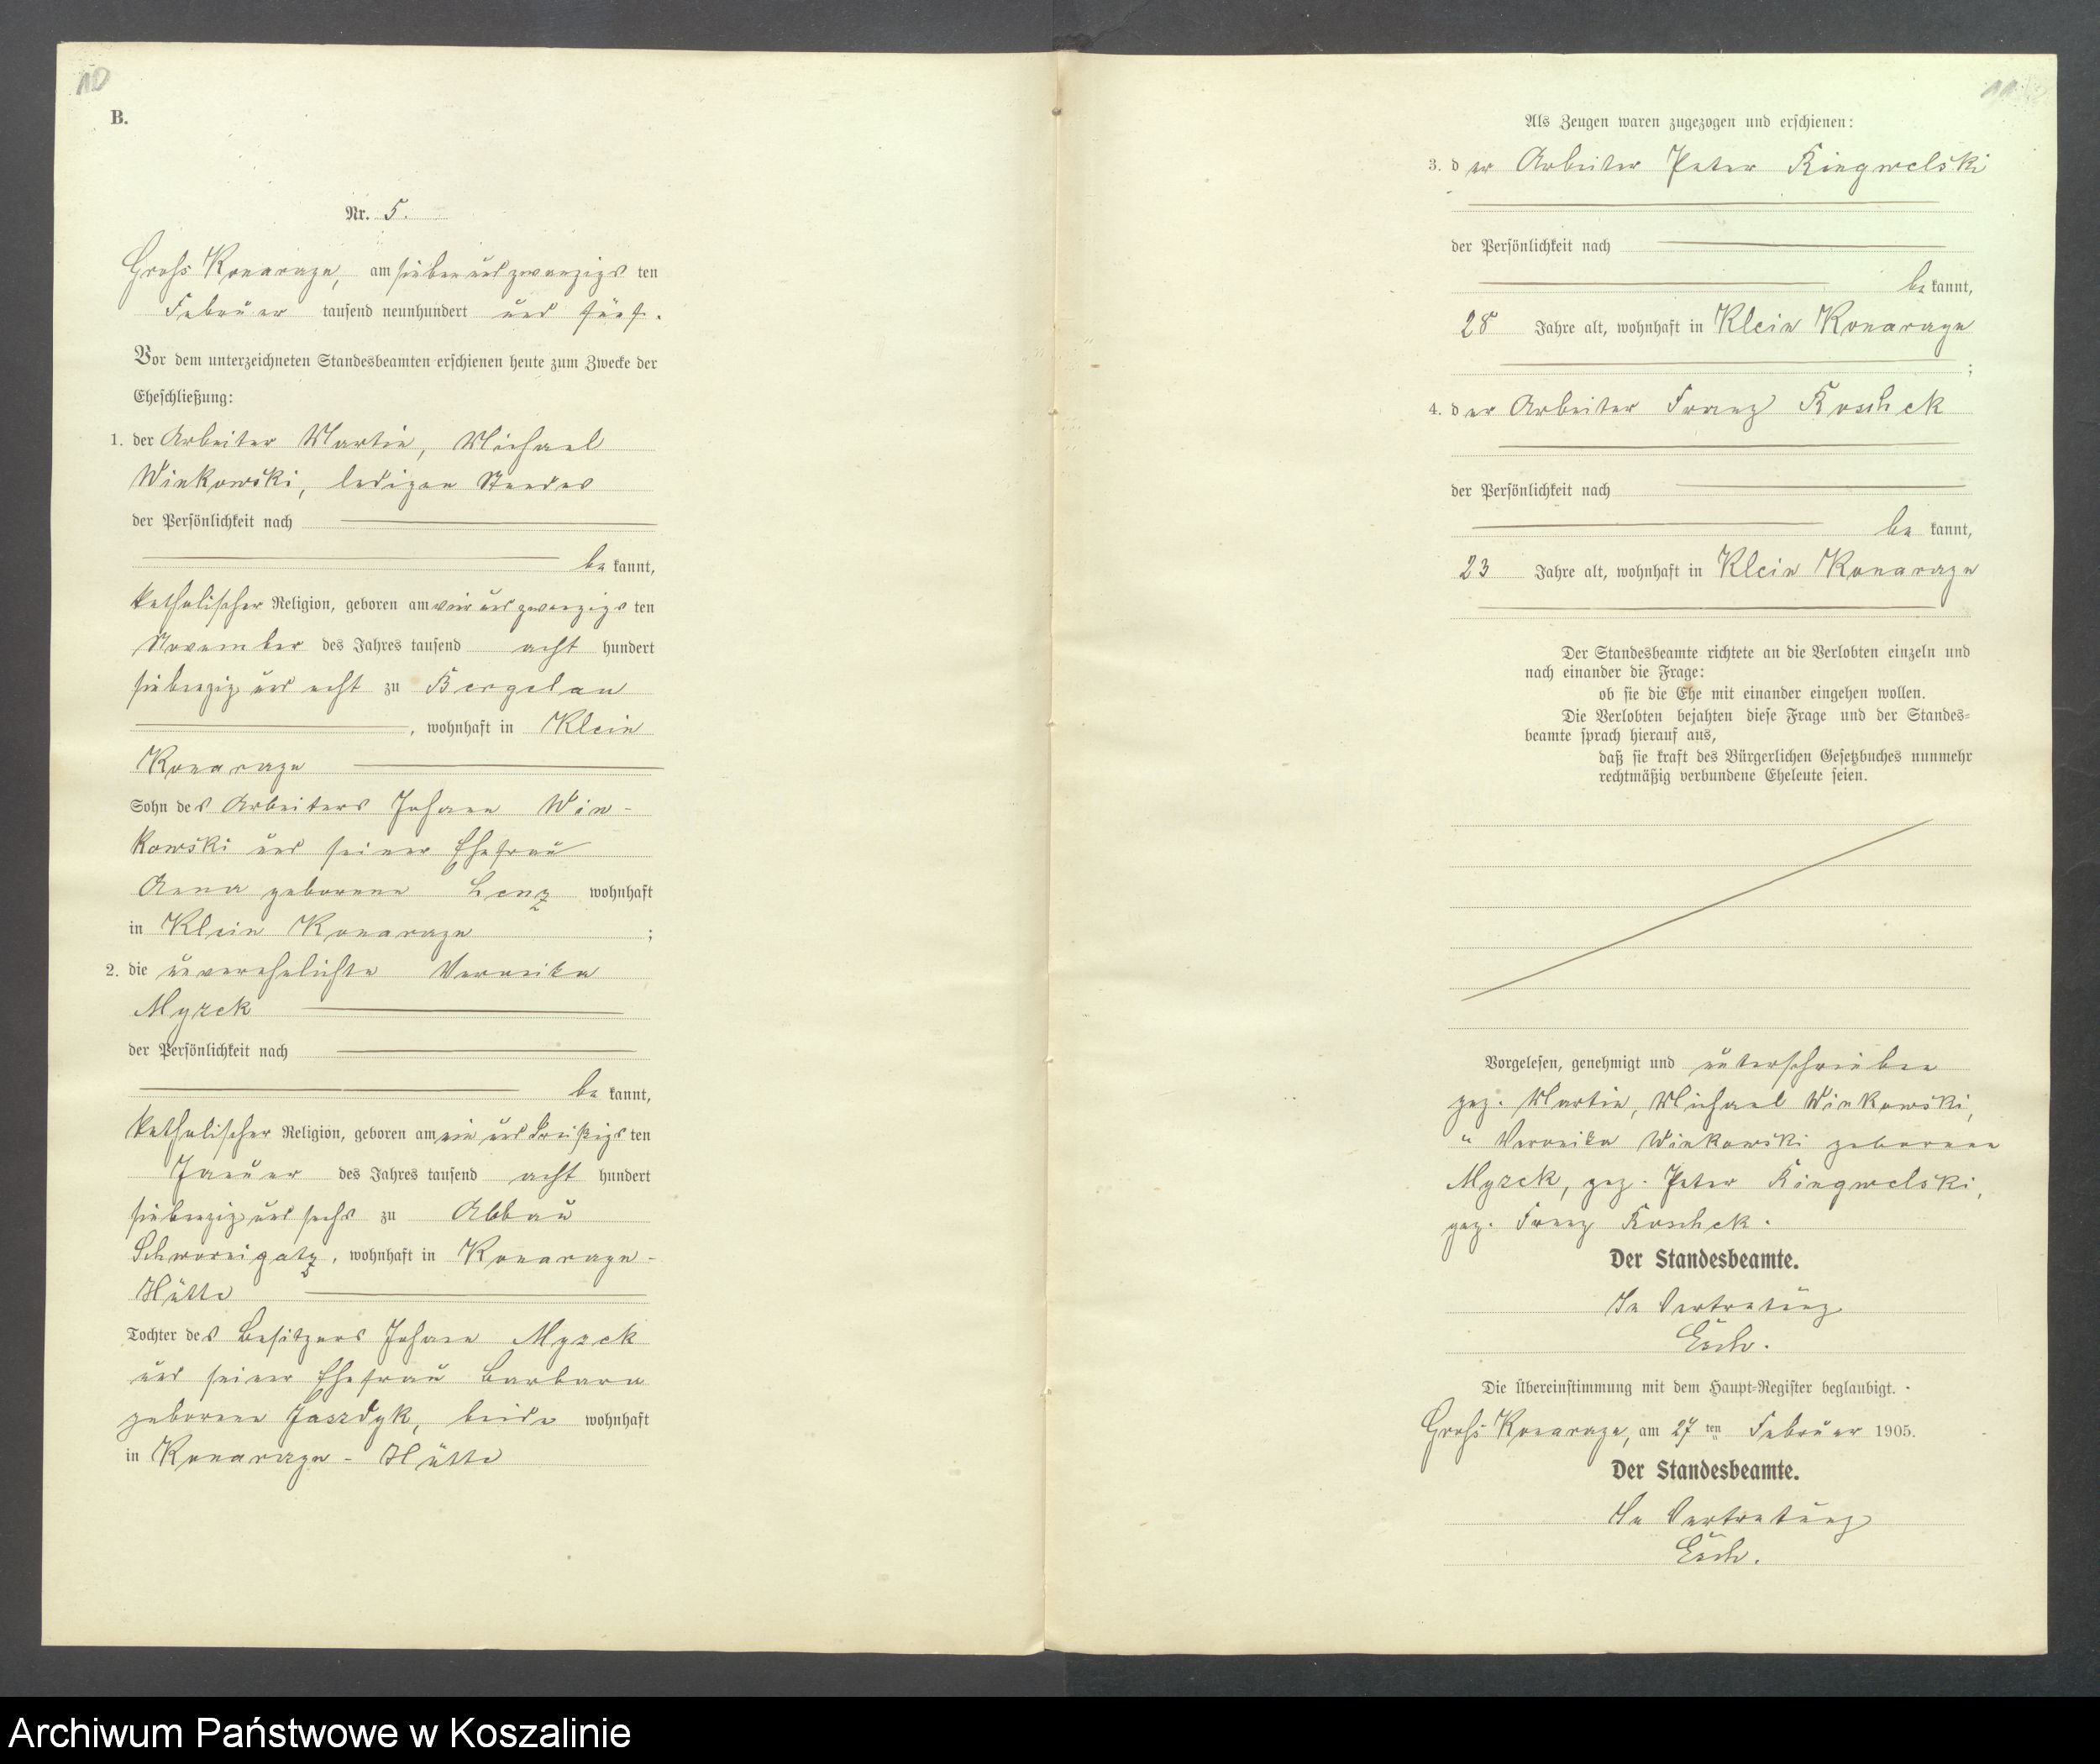 10
B.
Nr. 5.
Gross Konarzyn, am siebenundzwanzigs ten
Februar tausend neunhundert und fünf.
Vor dem unterzeichneten Standesbeamten erschienen heute zum Zwecke der
Eheschließung:
1. der Arbeiter Martin, Michael
Winkowski, ledigen Standes
der Persönlichkeit nach
be kannt,
katholischer Religion, geboren am vier und zwanzigs ten
November des Jahres tausend acht hundert
siebenzig und acht zu
, wohnhaft in Klein
Konarzyn
Sohn des Arbeiters Johann Win-
kowski und seiner Ehefrau
Anna geborene Lenz wohnhaft
in Klein Konarzyn ;
2. die unverehelichte Veronika
Myzek
der Persönlichkeit nach
be kannt,
katholischer Religion, geboren am ein und dreißigs ten
Januar des Jahres tausend acht hundert
siebenzig und sechs zu Abbau
Schwornigatz, wohnhaft in Konarzyn-
Hütte
Tochter des Besitzers Johann Myzek
und seiner Ehefrau Barbara
geborene Jaszdyk, beide wohnhaft
in Konarzyn-Hütte
11
Als Zeugen waren zugezogen und erschienen:
3. der Arbeiter Peter Ringwelski
der Persönlichkeit nach
be kannt,
28 Jahre alt, wohnhaft in Klein Konarzyn
;
4. der Arbeiter Franz Roschek
der Persönlichkeit nach
be kannt,
23 Jahre alt, wohnhaft in Klein Konarzyn
Der Standesbeamte richtete an die Verlobten einzeln und
nach einander die Frage:
ob sie die Ehe mit einander eingehen wollen.
Die Verlobten bejahten diese Frage und der Standes=
beamte sprach hierauf aus,
daß sie kraft des Bürgerlichen Gesetzbuches nunmehr
rechtmäßig verbundene Eheleute seien.
Vorgelesen, genehmigt und unterschrieben
gez. Martin, Michael Winkowski,
" Veronika Winkowski geborene
Myzek, gez. Peter Ringwelski,
gez. Franz Roschek.
Der Standesbeamte.
In Vertretung
Der Übereinstimmung mit dem Haupt-Register beglaubigt.
Gross Konarzyn, am 27 ten Februar 1905.
Der Standesbeamte.
In Vertretung
Archiwum Państwowe w Koszalinie